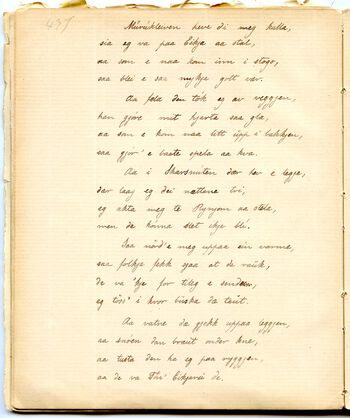 437
Núvúkleiven neve di meg kalla,
sia eg va paa Eikja aa stal,
aa som e naa kom inn i stogo,
saa blei e saa mykje gott var.
Aa fela den tók eg av veggjen,
hen gjore mit hjerta saa gla,
aa som e kom naa litt upp i bakkjen,
saa gjør' e baste spela aa kva.
Aa i Skarsmuten dær her e legje,
dar laag eg dei nættene tvi,
eg akta meg te Rynjom aa stela,
men de kónna slet ikje bli.
Saa nörd'e meg uppaa ein varme,
saa folkje fekk sjaa at de rauk,
de va 'kje for tileg e sendeer,
eg töss' i kvor buska da taut.
Aa valne da gjekk uppaa leggjen,
aa snoen dan braut under kne,
aa tusta den ha eg paa ryggjen,
aa de va Thi' Eikjarei de.